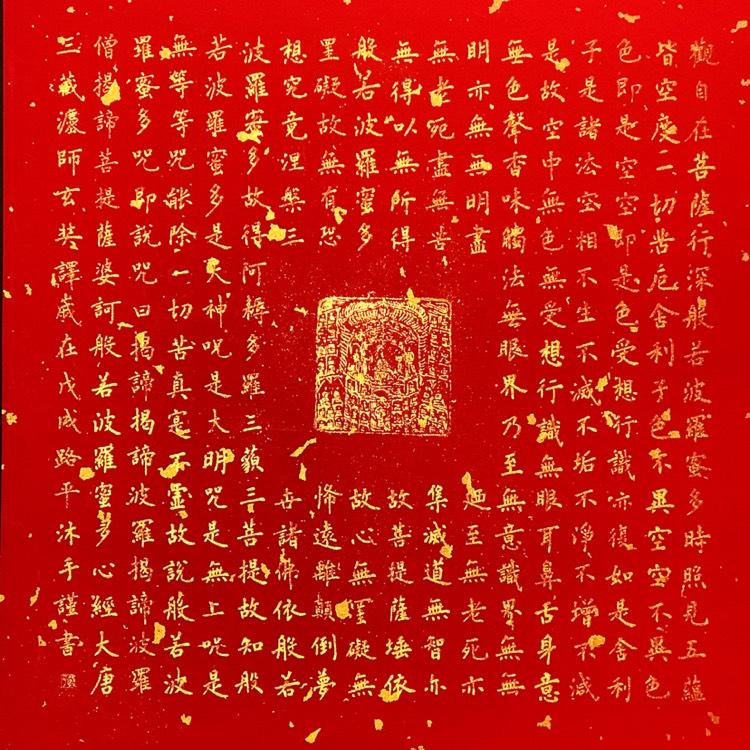 觀自在菩薩行深般若波羅蜜多時照見五蘊
皆空度一切苦厄舍利子色不異空空不異色
色即是空空即是色受想行識亦復如是舍利
子是諸法空相不生不滅不垢不淨不增不減
是故空中無色無受想行識無眼耳鼻舌身意
無色聲香味觸法無眼界乃至無意識界無無
明亦無無明盡迺至無老死亦
無老死盡無苦集滅道無智亦
無得以無所得故菩提薩埵依
般若波羅蜜多故心無罣礙無
罣礙故無有恐怖遠離顛倒夢
想究竟涅槃三世諸佛依般若
波羅蜜多故得阿耨多羅三藐三菩提故知般
若波羅蜜多是大神咒是大明咒是無上咒是
無等等咒能除一切苦真實不虛故說般若波
羅蜜多咒即說咒曰揭諦揭諦波羅揭諦波羅
僧揭諦菩提薩婆訶般若波羅蜜多心經大唐
三藏灋師玄奘譯歲在戊戌路平沐手謹書